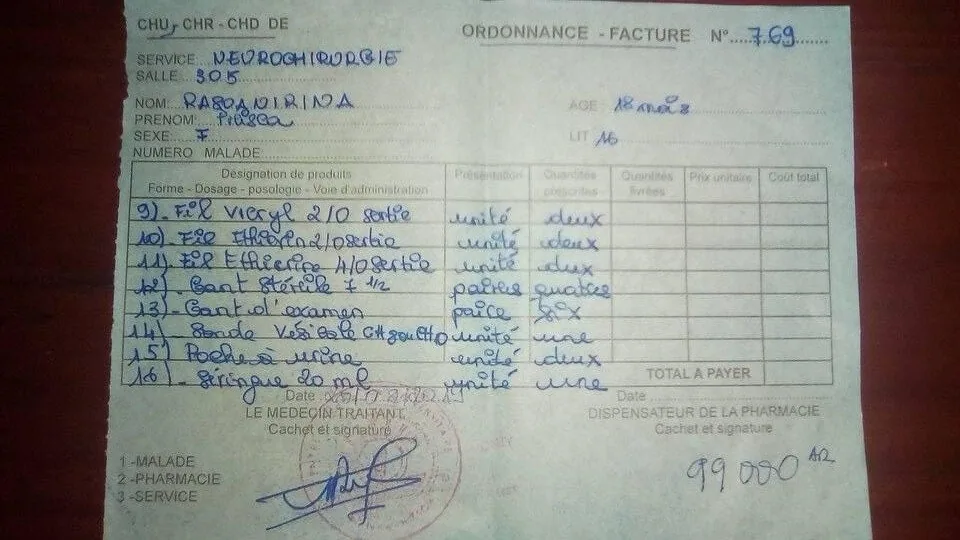 CHU - CHR - CHD DE
ORDONNANCE - FACTURE N° 769
SERVICE NEUROCHIRURGIE
SALLE 305
NOM: RASOANIRINA
AGE 18 mois
PRENOM: Prisca
SEXE F
LIT 16
NUMERO MALADE
Désignation de produits
Forme - Dosage - posologie - Voie d'administration
Présentation
Quantités prescrites
Quantités livrées
Prix unitaire
Coût total
9) - Fil Vicryl 2/0 sertie unité deux
10) - Fil 2/0 sertie unité deux
11) - Fil 4/0 sertie unité deux
12) - Gant stérile 7 1/2 paires quatres
13) - Gant d'examen paire six
14) - Sonde Vésicale unité une
15) Poche à urine unité deux
16) - Siringue 20 ml unité une
TOTAL A PAYER
Date
Date
LE MEDECIN TRAITANT
Cachet et signature
DISPENSATEUR DE LA PHARMACIE
Cachet et signature
1 -MALADE
2 -PHARMACIE
3 -SERVICE
99 000 AR